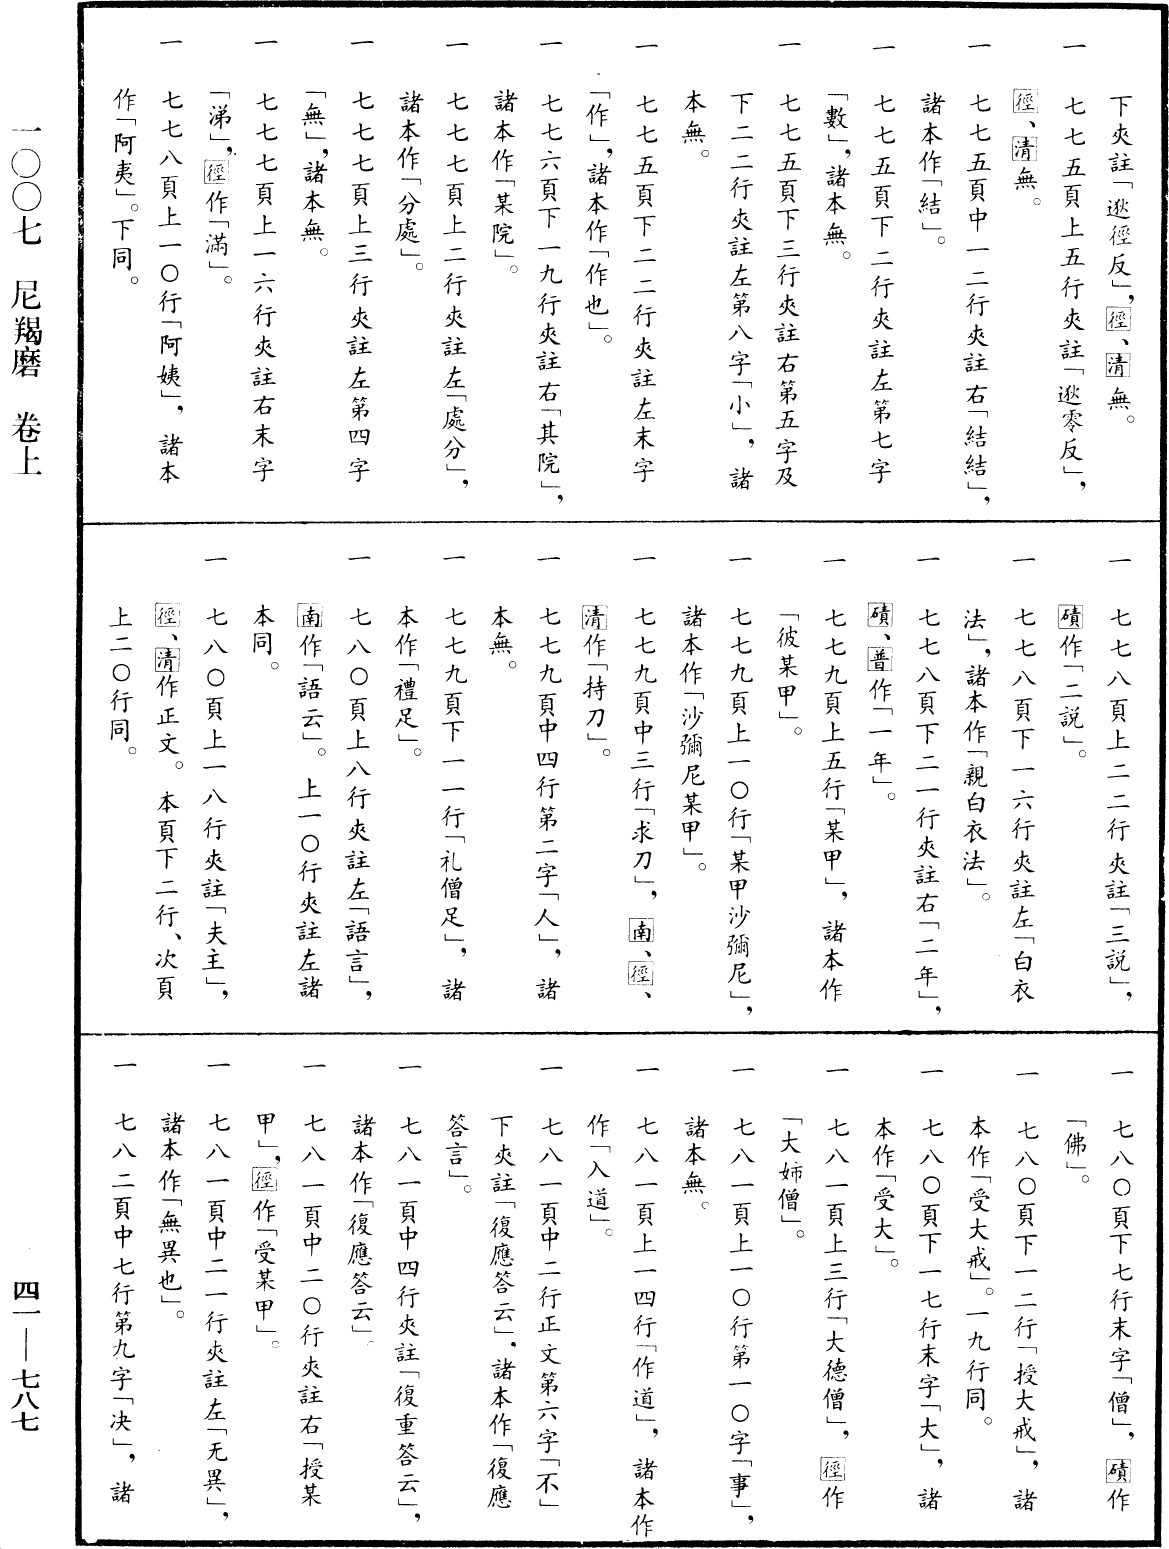 下夾註「逖徑反」，徑、清無。
一　七七五頁上五行夾註「逖零反」，
徑、清無。
一　七七五頁中一二行夾註右「結結」，
諸本作「結」。
一　七七五頁下二行夾註左第七字
「數」，諸本無。
一　七七五頁下三行夾註右第五字及
下二二行夾註左第八字「小」，諸
本無。
一　七七五頁下二二行夾註左末字
「作」，諸本作「作也」。
一　七七六頁下一九行夾註右「其院」，
諸本作「某院」。
一　七七七頁上二行夾註左「處分」，
諸本作「分處」。
一　七七七頁上三行夾註左第四字
「無」，諸本無。
一　七七七頁上一六行夾註右末字
「涕」，徑作「滿」。
一　七七八頁上一〇行「阿姨」，諸本
作「阿夷」。下同。
一　七七八頁上二二行夾註「三説」，
磧作「二説」。
一　七七八頁下一六行夾註左「白衣
法」，諸本作「親白衣法」。
一　七七八頁下二一行夾註右「二年」，
磧、普作「一年」。
一　七七九頁上五行「某甲」，諸本作
「彼某甲」。
一　七七九頁上一〇行「某甲沙彌尼」，
諸本作「沙彌尼某甲」。
一　七七九頁中三行「求刀」，南、徑、
清作「持刀」。
一　七七九頁中四行第二字「人」，諸
本無。
一　七七九頁下一一行「礼僧足」，諸
本作「禮足」。
一　七八〇頁上八行夾註左「語言」，
南作「語云」。上一〇行夾註左諸
本同。
一　七八〇頁上一八行夾註「夫主」，
徑、清作正文。本頁下二行、次頁
上二〇行同。
一　七八〇頁下七行末字「僧」，磧作
「佛」。
一　七八〇頁下一二行「授大戒」，諸
本作「受大戒」。一九行同。
一　七八〇頁下一七行末字「大」，諸
本作「受大」。
一　七八一頁上三行「大德僧」，徑作
「大姊僧」。
一　七八一頁上一〇行第一〇字「事」，
諸本無。
一　七八一頁上一四行「作道」，諸本作
作「入道」。
一　七八一頁中二行正文第六字「不」
下夾註「復應答云」，諸本作「復應
答言」。
一　七八一頁中四行夾註「復重答云」，
諸本作「復應答云」。
一　七八一頁中二〇行夾註右「授某
甲」，徑作「受某甲」。
一　七八一頁中二一行夾註左「无異」，
諸本作「無異也」。
一　七八二頁中七行第九字「决」，諸
一〇〇七　尼羯磨　卷上
四一——七八七